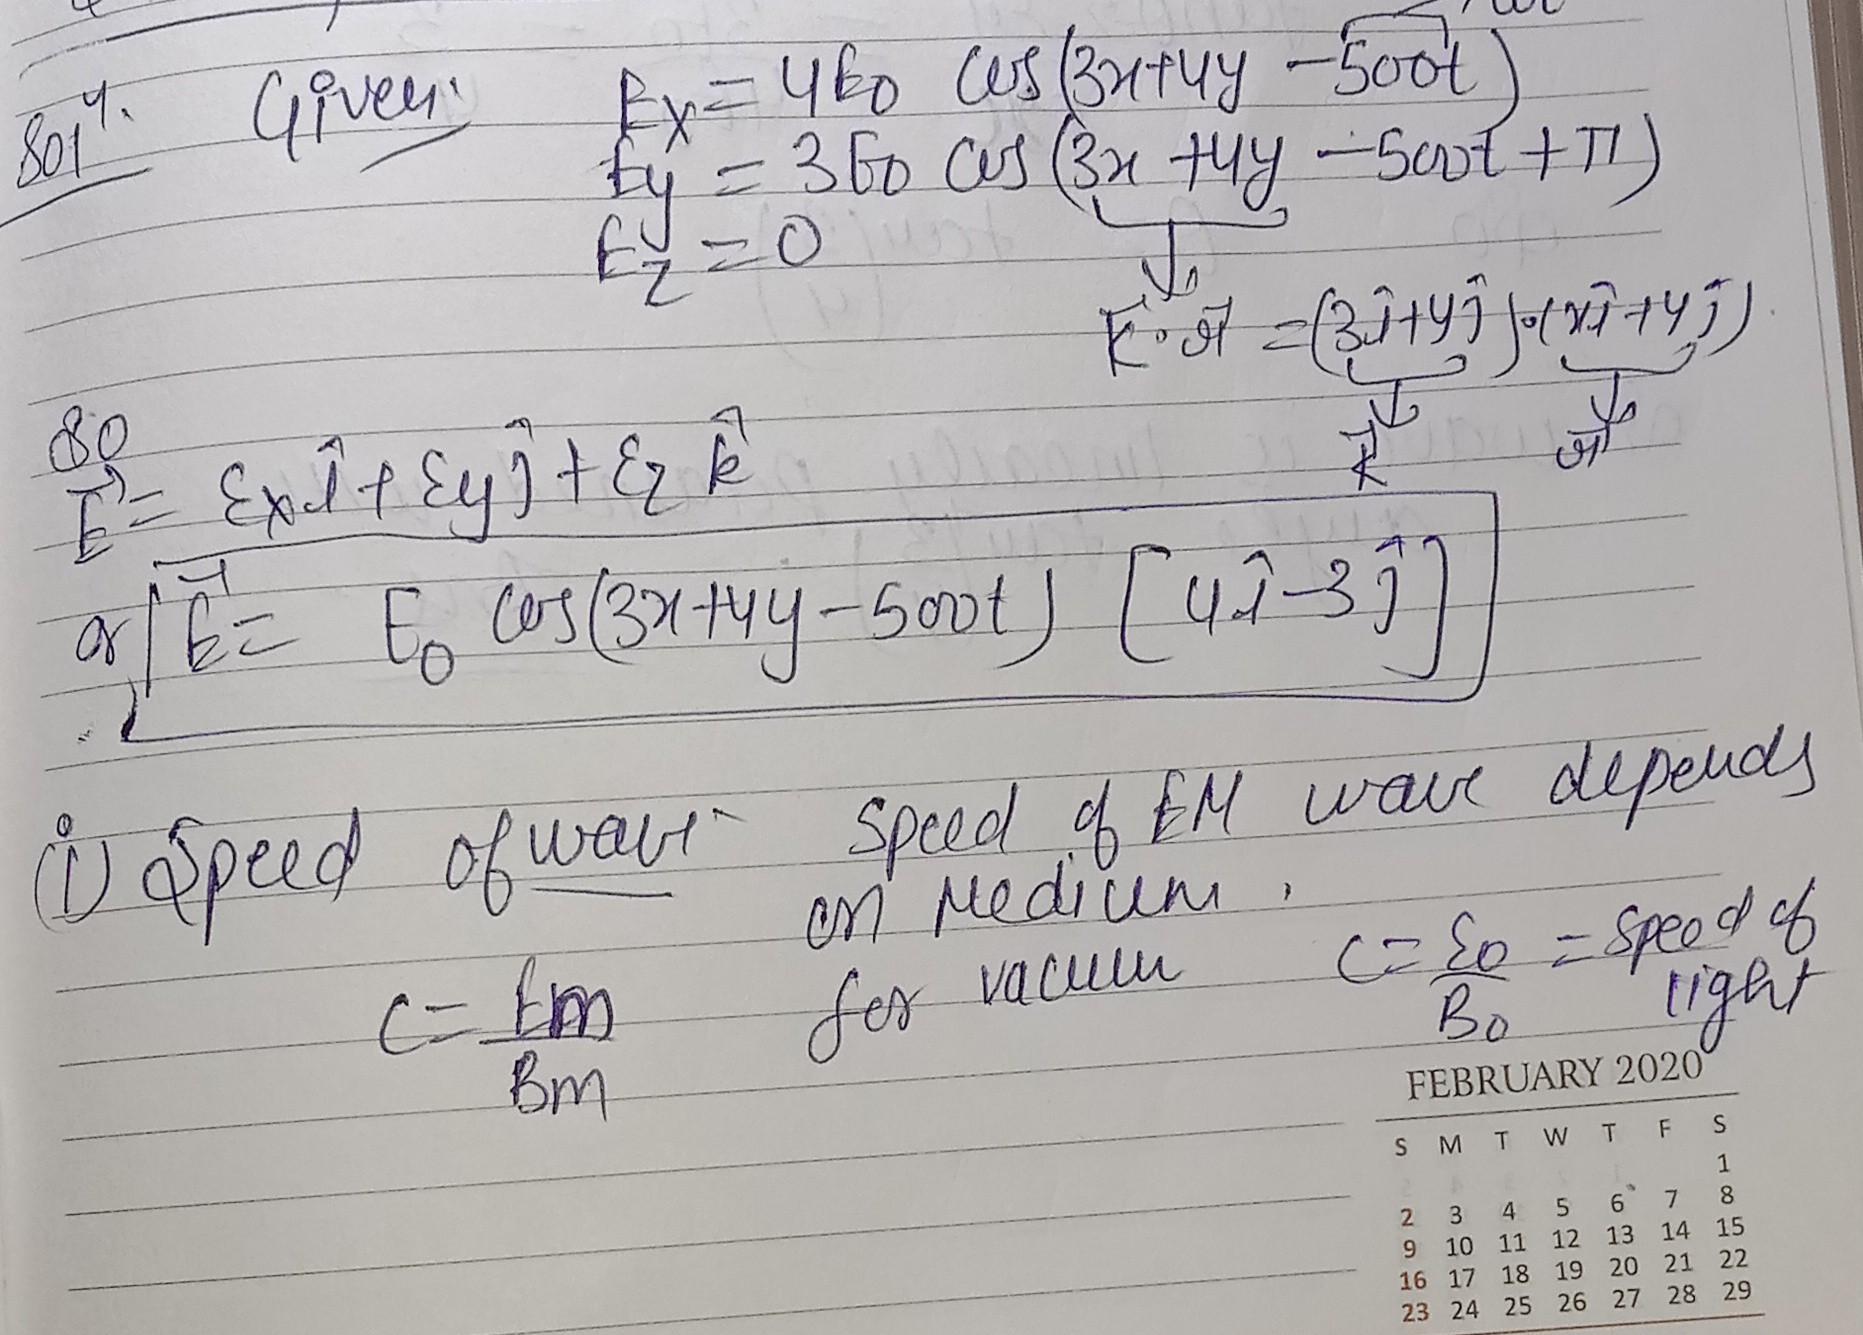 801 4. Given:
Ex = 4E0 cos(3x+4y -500t)
Ey = 3E0 cos(3x +4y -500t +π)
Ez = 0
K⃗·r⃗ = (3î+4ĵ)·(xî+yĵ)
K⃗ r⃗
So
E⃗ = Exî + Eyĵ + Ez k̂
or E⃗ = E0 cos(3x+4y-500t) [4î-3ĵ]
(i) Speed of wave- Speed of EM wave depends
on Medium.
c = Em/Bm for vacuum c = E0/B0 = Speed of
light
FEBRUARY 2020
S M T W T F S
1
2 3 4 5 6 7 8
9 10 11 12 13 14 15
16 17 18 19 20 21 22
23 24 25 26 27 28 29